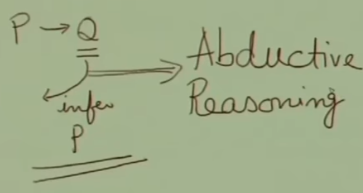 P → Q
infer
P
Abductive
Reasoning